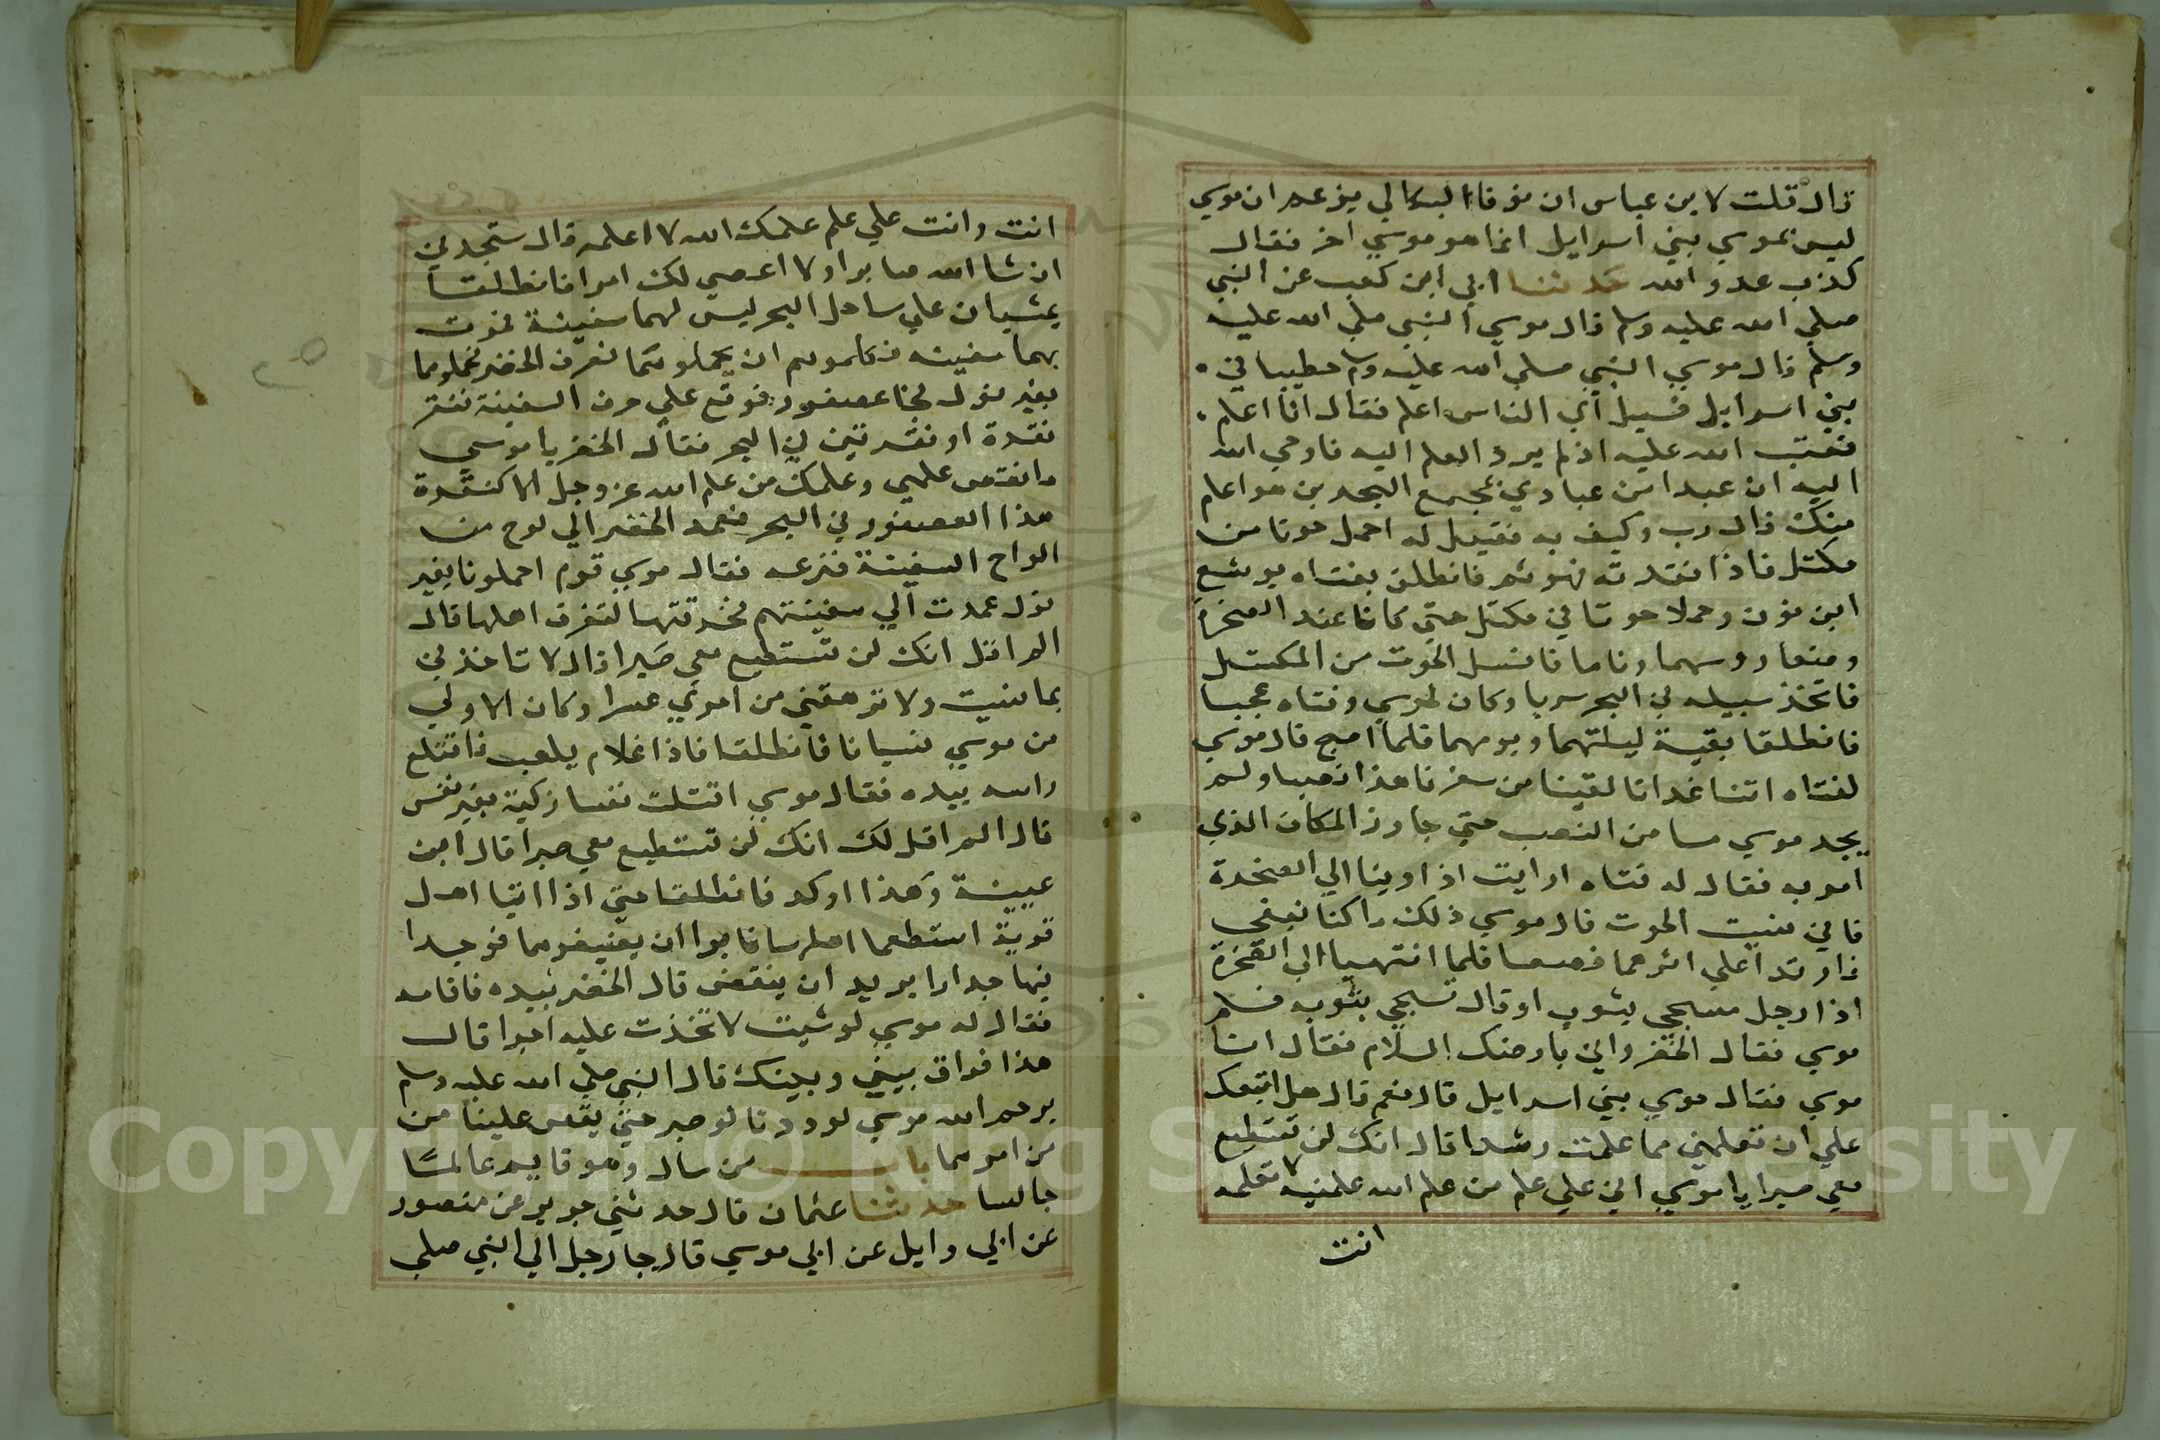 قال قلت لابن عباس ان نوفا البكالي يزعم ان موسي
ليس بموسي بني اسرايل انما هو موسي اخر فقال
كذب عدو الله حدثنا ابي ابن كعب عن النبي
صلي الله عليه وسلم قال موسي النبي صلي الله عليه
وسلم قال موسي النبي صلي الله عليه وسلم خطيبا في
بني اسرايل فسيل اي الناس اعلم فقال انا اعلم
فعتب الله عليه اذ لم يرد العلم اليه فاوحي الله
اليه ان عبدا من عبادي بمجمع البحرين هو اعلم
منك قال رب وكيف به فقيل له احمل حوتا من
مكتل فاذا فقدته فهو ثم فانطلق بفتاه يوشع
ابن نون وحملا حوتا في مكتل حتي كانا عند الصخرة
وضعا روسهما وناما فانسل الحوت من المكتل
فاتخذ سبيله في البحر سربا وكان لموسي وفتاه عجبا
فانطلقا بقية ليلتهما ويومهما فلما اصبح قال موسي
لفتاه اتنا غدانا لقينا من سفرنا هذا نصبا ولم
يجد موسي مسا من النصب حتي جاوز المكان الذي
امر به فقال له فتاه ارايت اذ اوينا الي الصخرة
فاني نسيت الحوت قال موسي ذلك ما كنا نبغي
فارتدا علي اثرهما قصصا فلما انتهيا الي الصخرة
اذا رجل مسجي بثوب او قال تسجي بثوبه فسلم
موسي فقال الخضر واني بارضك السلام فقال انا
موسي فقال موسي بني اسرايل قال نعم قال هل اتبعك
علي ان تعلمني مما علمت رشدا قال انك لن تستطيع
معي صبرا يا موسي اني علي علم من علم الله علمنيه لا تعلمه
انت
انت وانت علي علم علمك الله لا اعلمه قال ستجدني
ان شا الله صابرا ولا اعصي لك امرا فانطلقا
يمشيان علي ساحل البحر ليس لهما سفينة فمرت
بهما سفينه فكلموهم ان يحملوهما فعرف الخضر فحملوهما
بغير نول فجا عصفور فوقع علي حرف السفينة فنقر
نقرة او نقرتين في البحر فقال الخضر يا موسي
ما نقص علمي وعلمك من علم الله عز وجل الا كنقرة
هذا العصفور في البحر فعمد الخضر الي لوح من
الواح السفينة فنزعه فقال موسي قوم احملونا بغير
نول عمدت الي سفينتهم فخرقتها لتغرق اهلها قال
الم اقل انك لن تستطيع معي صبرا قال لا تاخذني
بما نسيت ولا ترهقني من امري عسرا وكان الاولي
من موسي نسيانا فانطلقا فاذا غلام يلعب فاقتلع
راسه بيده فقال موسي اقتلت نفسا زكية بغير نفس
قال الم اقل لك انك لن تستطيع معي صبرا قال ابن
عيينة وهذا اوكد فانطلقا حتي اذا اتيا اهل
قرية استطعما اهلها فابوا ان يضيفوهما فوجدا
فيها جدارا يريد ان ينقض قال الخضر بيده فاقامه
فقال له موسي لو شيت لاتخذت عليه اجرا قال
هذا فراق بيني وبينك قال النبي صلي الله عليه وسلم
يرحم الله موسي لوددنا لو صبر حتي يقص علينا من
من امرهما باب من سال وهو قايم عالما
جالسا حدثنا عثمان قال حدثني جرير عن منصور
عن ابي وايل عن ابي موسي قال جا رجل الي النبي صلي
Copyright © King Saud University